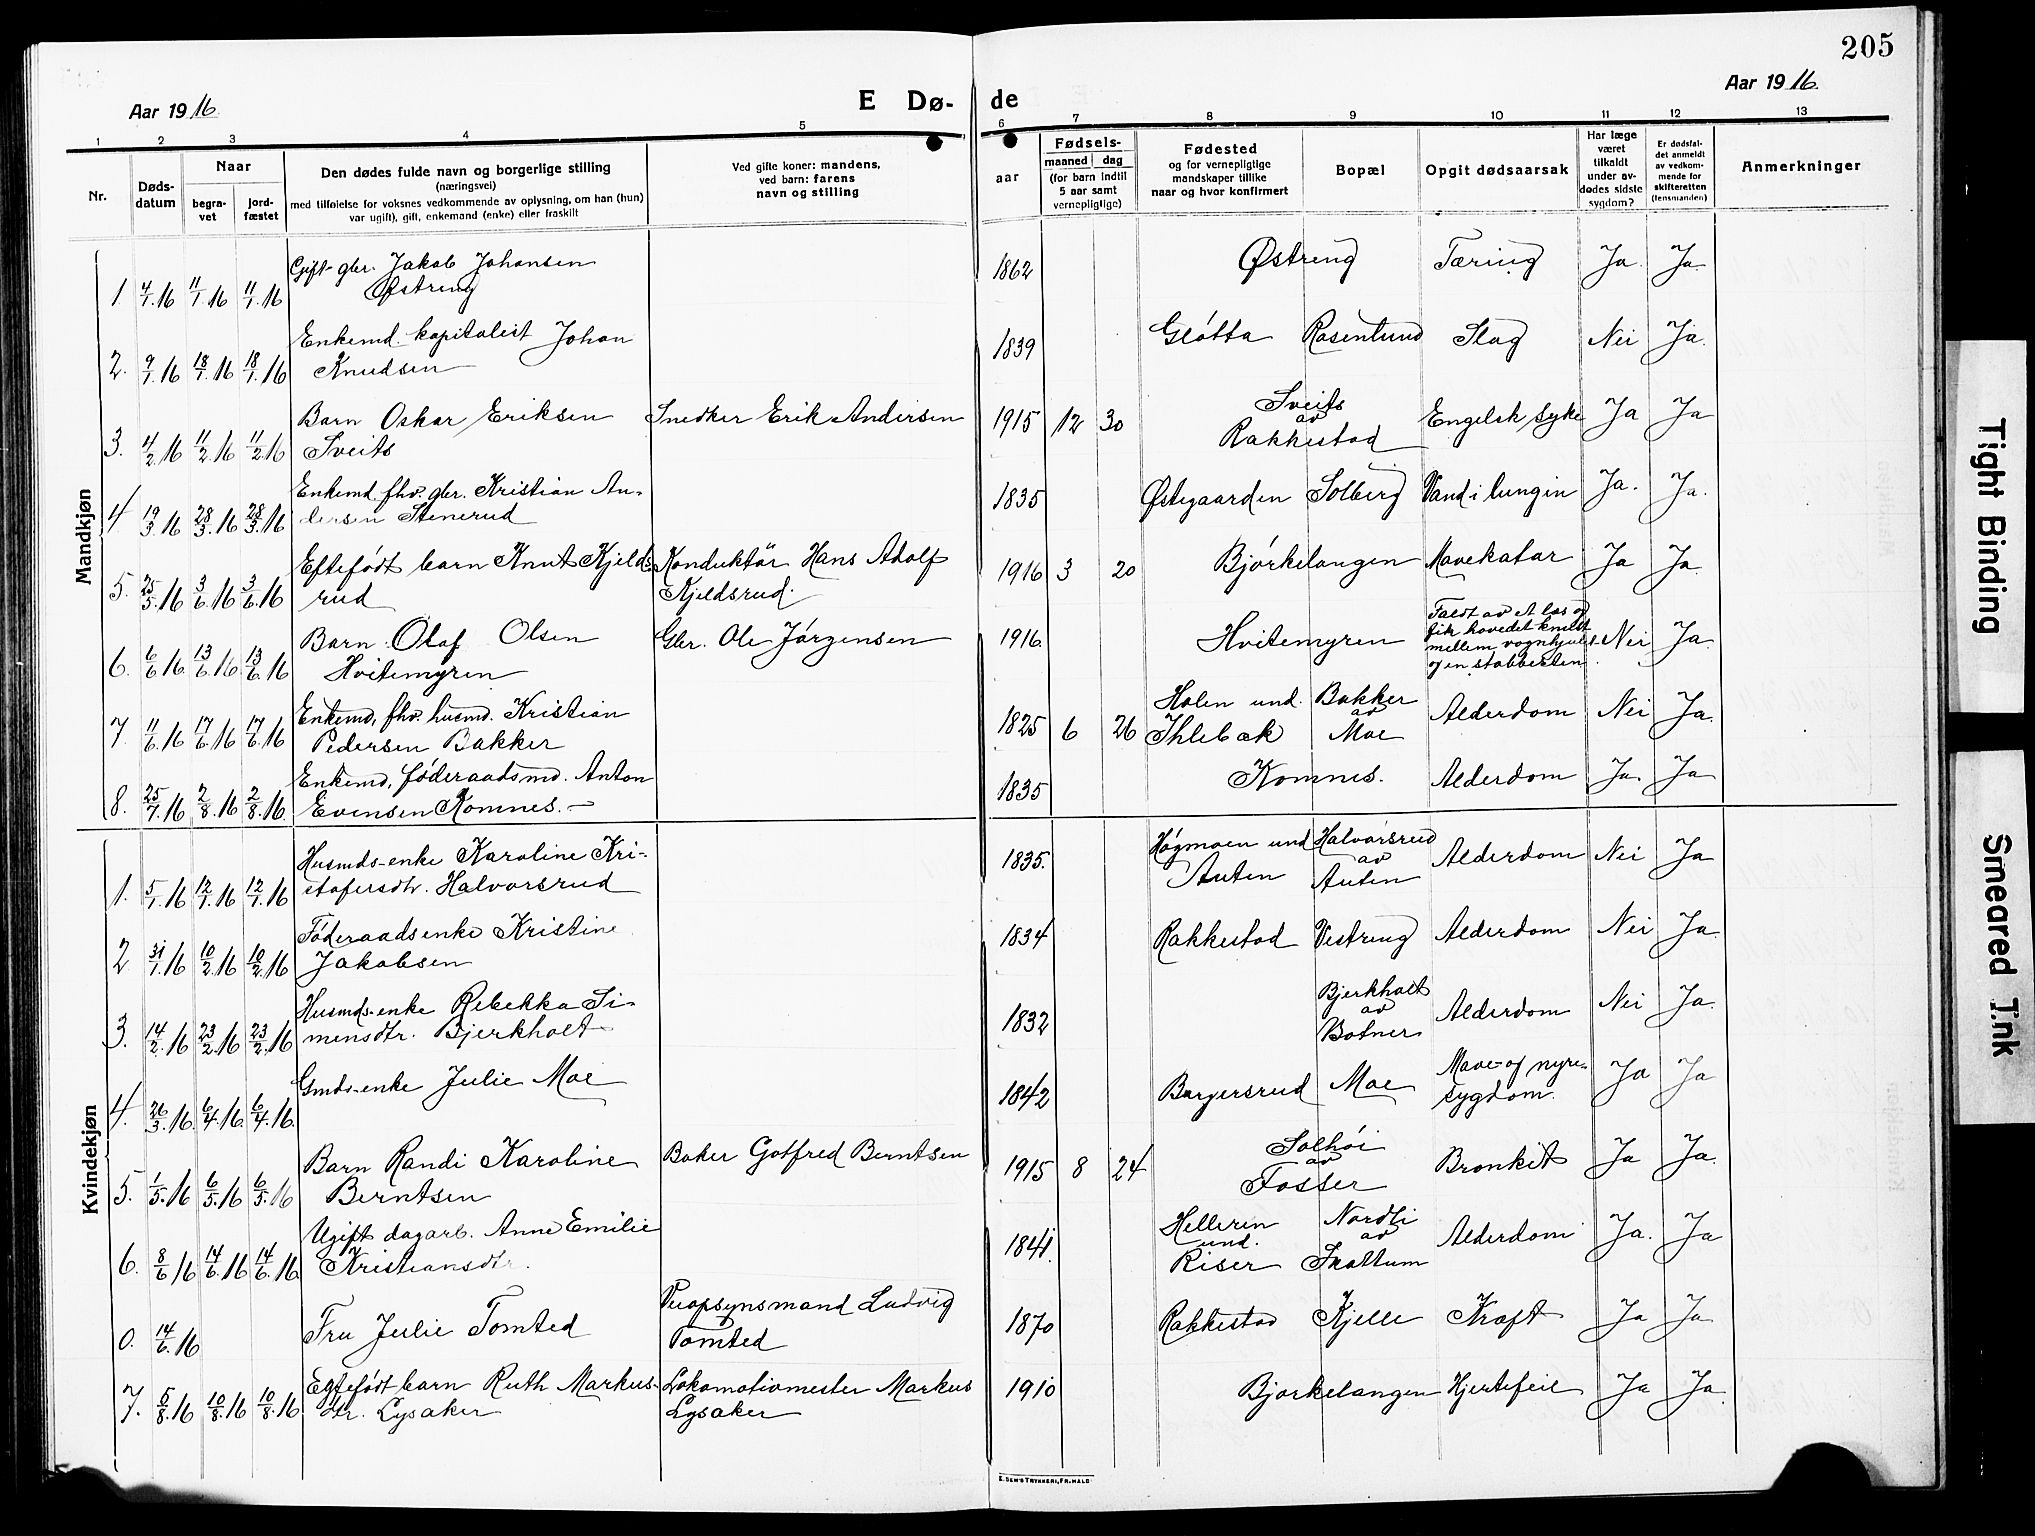 205
Aar 1916.
E Dø-
de
Aar 1916.
1 2 3 4 5 6 7 8 9 10 11 12 13
Nr.
Døds-
datum
Naar
begra-
vet
jord-
fæstet
Den dødes fulde navn og borgerlige stilling
(næringsvei)
med tilføielse for voksnes vedkommende av oplysning, om han (hun)
var ugift, gift, enkemand (enke) eller fraskilt
Ved gifte koner: mandens,
ved barn: farens
navn og stilling
aar
Fødsels-
maaned dag
(for barn indtil
5 aar samt
vernepligtige)
Fødested
og for vernepligtige
mandskaper tillike
naar og hvor konfirmert
Bopæl
Opgit dødsaarsak
Har læge
været
tilkaldt
under av-
dødes sidste
sygdom?
Er dødsfal-
det anmeldt
av vedkom-
mende for
skifteretten
(lensmanden)
Anmerkninger
Mandkjøn
1 4/1.16 11/1.16 11/1.16 Gift gbr. Jakob Johansen
Østreng
1862 Østreng Tæring Ja Ja
2. 9/1.16 18/1.16 18/1.16 Enkemd. kapitalist Johan
Knudsen
1839 Gløtta Rosenlund Slag Nei Ja.
3. 4/2.16 11/2.16 11/2.16 Barn Oskar Eriksen
Sveits
Snedker Erik Andersen
1915 12 30 Sveits
av
Rakkestad
Engelsk syke Ja Ja
4 19/3.16 28/3.16 28/3.16 Enkemd. fhv. gbr. Kristian An-
dersen Stenerud
1835 Østegaarden Solberg Vand i lungin Ja. Ja.
5. 25/5.16 3/6.16 3/6.16 Eftefødt barn Knut Kjelds-
rud
Konduktør Hans Adolf
Kjeldsrud.
1916 3 20 Bjørkelangen Mavekatar Ja Ja
6. 6/6.16 13/6.16 13/6.16 Barn Olaf Olsen
Hvitemyren
Gbr. Ole Jørgensen
1916. Hvitemyren
Faldt av et las og
fik hovedet knust
mellem vognhjulet
og en stabbesten
Nei Ja.
7. 11/6.16 17/6.16 17/6.16 Enkemd, fhv. husmd. Kristian
Pedersen Bakker
1825 6 26 Holen und.
Ihlebæk
Bakker
av
Moe
Alderdom Nei Ja.
8. 25/7.16 2/8.16 2/8.16 Enkemd, føderaadsmd. Anton
Evensen Komnes. –
1835 Komnes. Alderdom Ja. Ja
Kvindekjøn
1. 5/1.16 12/1.16 12/1.16 Husmds-enke Karoline Kri-
stofersdtr. Halvorsrud
1835. Høgmoen und
Auten
Halvorsrud
av
Auten
Alderdom Nei Ja
2 31/1.16 10/2.16 10/2.16 Føderaadsenke Kristine
Jakobsen
1834 Rakkestad Vestreng Alderdom Nei Ja
3. 14/2.16 23/2.16 23/2.16 Husmds-enke Rebekka Si-
mensdtr. Bjerkholt
1832
Bjerkholt
av
Botner
Alderdom Nei Ja.
4. 26/3.16 6/4.16 6/4.16. Gmds-enke Julie Moe
1842 Børgersrud Moe Mave- og nyre-
sygdom.
Ja Ja
5. 1/5.16 6/5.16 6/5.16 Barn Randi Karoline
Berntsen
Baker Gotfred Berntsen
1915 8 24 Solhøi
av
Fosser
Bronkit Ja Ja.
6. 8/6 16 14/6.16 14/6.16 Ugift dagarb. Anne Emilie
Kristiansdtr.
1841. Helleren
und.
Riser
Nordli
av
Skattum
Alderdom Ja. Ja
0. 14/6.16 Fru Julie Tomted
Veiopsynsmand Ludvig
Tomted
1870 Rakkestad Kjelle Kræft Ja Ja
7. 5/8.16 10/8.16 10/8.16 Egtefødt barn Ruth Markus-
dtr. Lysaker
Lokomotivmester Markus
Lysaker
1910 Bjørkelangen Hjertefeil Ja Ja
E. SEM'S TRYKKERI, FR.HALD
Tight Binding
Smeared Ink